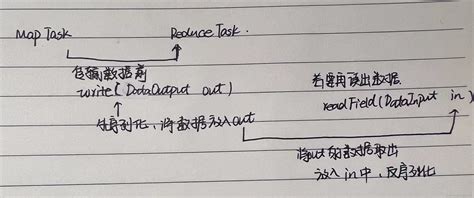 Map Task ReduceTask.
传输数据前
write(DataOutput out)
先序列化,将数据放入out
若要再读出数据
readField(DataInput in)
将out的数据取出
放入in中,反序列化